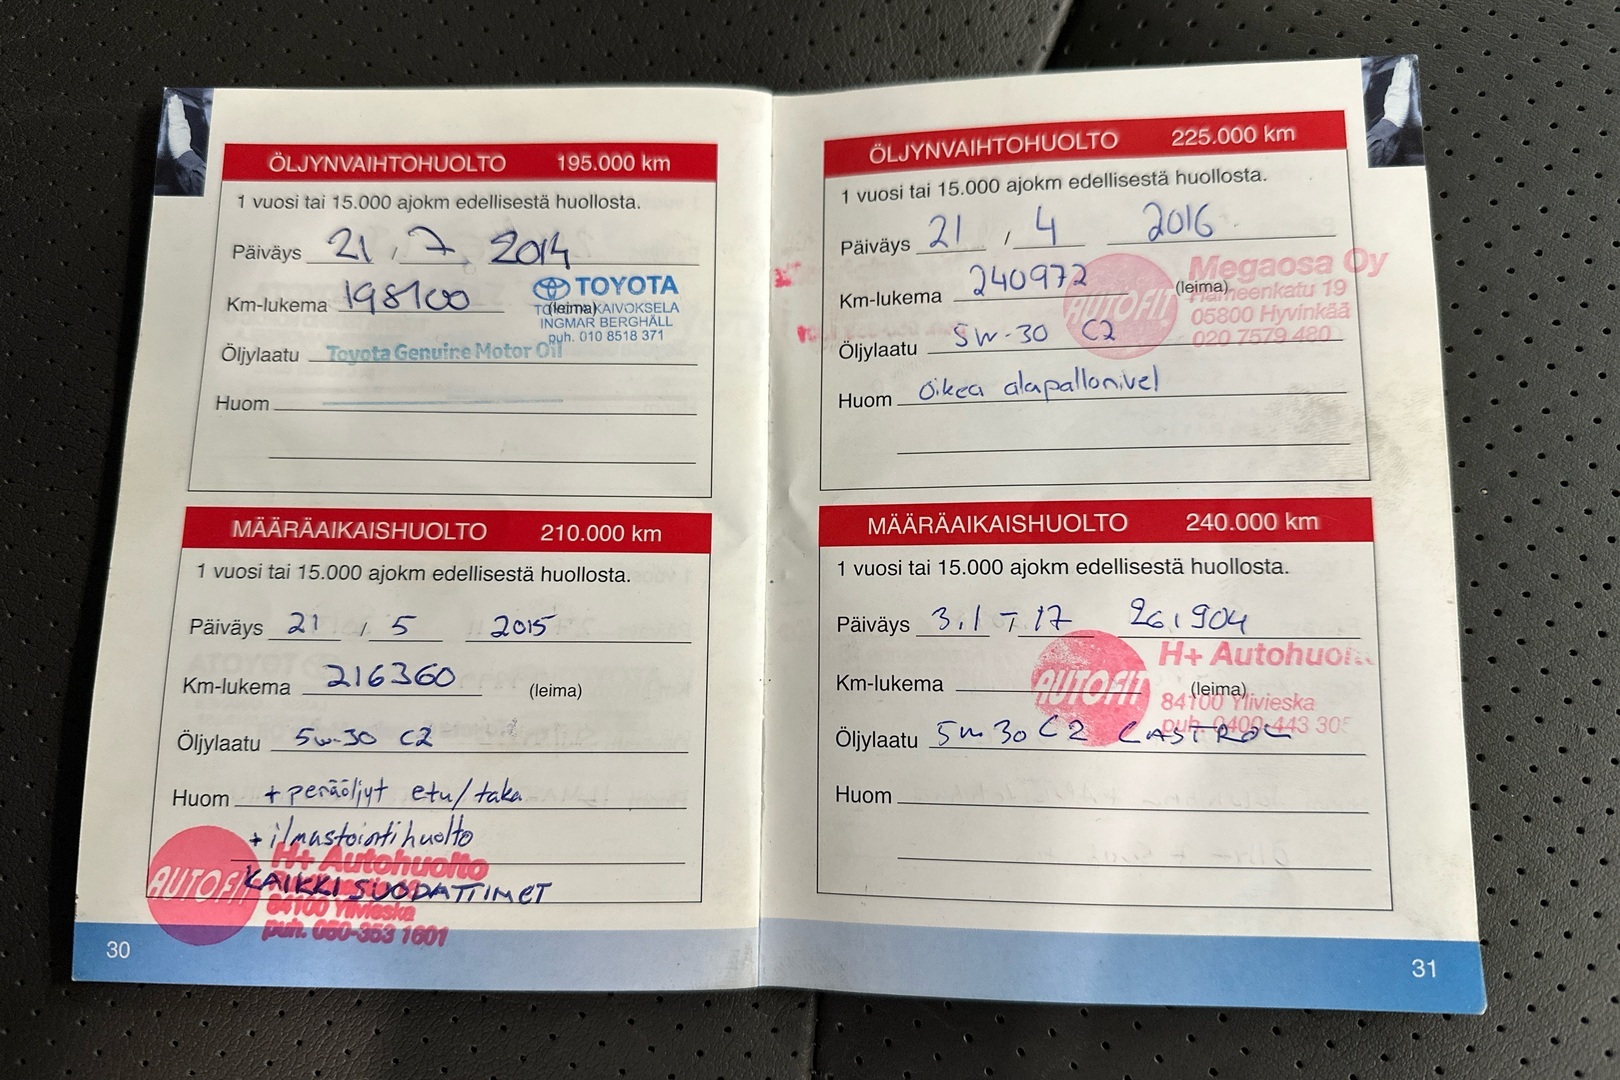 ÖLJYNVAIHTOHUOLTO 195.000 km
1 vuosi tai 15.000 ajokm edellisestä huollosta.
Päiväys 21 / 7 2014
Km-lukema 198100 (leima)
TOYOTA
KAIVOKSELA
INGMAR BERGHÄLL
puh. 010 8518 371
Öljylaatu Toyota Genuine Motor Oil
Huom
MÄÄRÄAIKAISHUOLTO 210.000 km
1 vuosi tai 15.000 ajokm edellisestä huollosta.
Päiväys 21 / 5 2015
Km-lukema 216360 (leima)
Öljylaatu 5w-30 C2
Huom + peräöljyt etu/taka
+ ilmastointihuolto
KAIKKI SUODATTIMET
AUTOFIT
H+ Autohuolto
84100 Ylivieska
puh. 050-353 1601
30
ÖLJYNVAIHTOHUOLTO 225.000 km
1 vuosi tai 15.000 ajokm edellisestä huollosta.
Päiväys 21 / 4 2016
Km-lukema 240972 (leima)
AUTOFIT
Megaosa Oy
Hämeenkatu 19
05800 Hyvinkää
020 7579 480
Öljylaatu 5w-30 C2
Huom oikea alapallonivel
MÄÄRÄAIKAISHUOLTO 240.000 km
1 vuosi tai 15.000 ajokm edellisestä huollosta.
Päiväys 3.1 - 17 261904
Km-lukema (leima)
AUTOFIT
H+ Autohuol
84100 Ylivieska
puh. 0400-443 305
Öljylaatu 5w30 C2 CASTROL
Huom
31